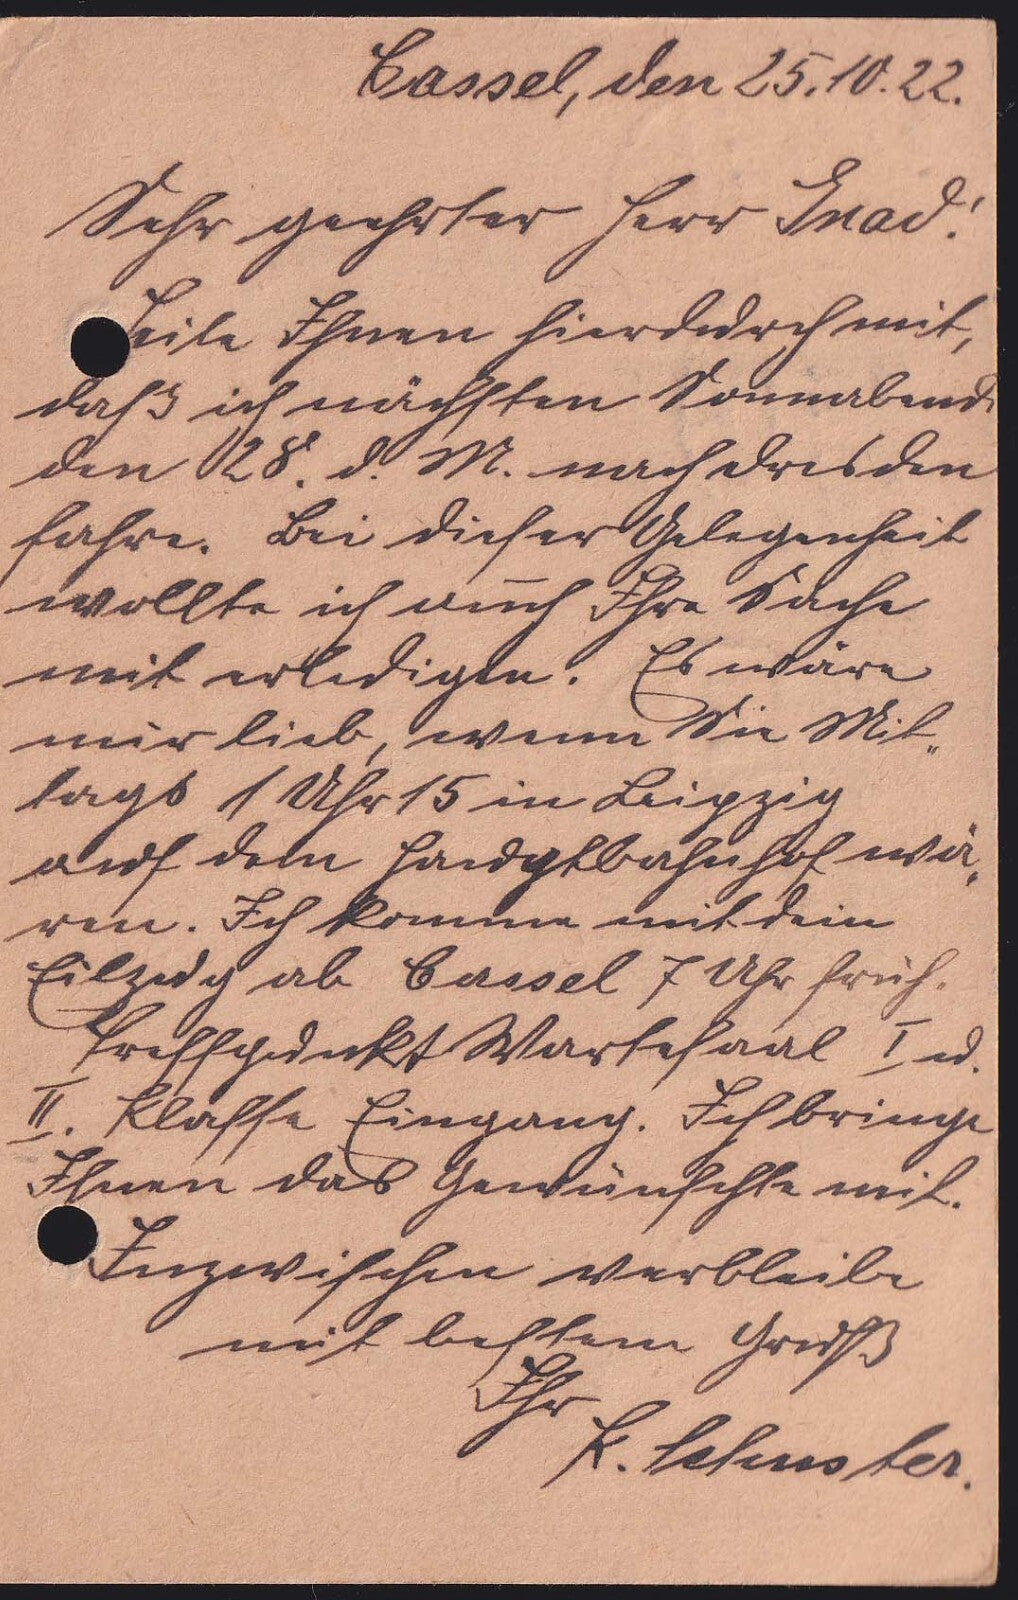 Cassel, den 25.10.22.
Sehr geehrter Herr Gnad!
Teile Ihnen hierdurch mit,
daß ich nächsten Sonnabend
den 28. d. M. nach Dresden
fahre. Bei dieser Gelegenheit
wollte ich auch Ihre Sache
mit erledigen. Es wäre
mir lieb, wenn Sie Mit„
tags 1 Uhr 15 in Leipzig
auf dem Hauptbahnhof wä„
ren. Ich komme mit dem
Eilzug ab Cassel 7 Uhr früh.
Treffpunkt Wartesaal I u.
II. Klasse Eingang. Ich bringe
Ihnen das Gewünschte mit.
Inzwischen verbleibe
mit bestem Gruß
Ihr
K. Schuster.